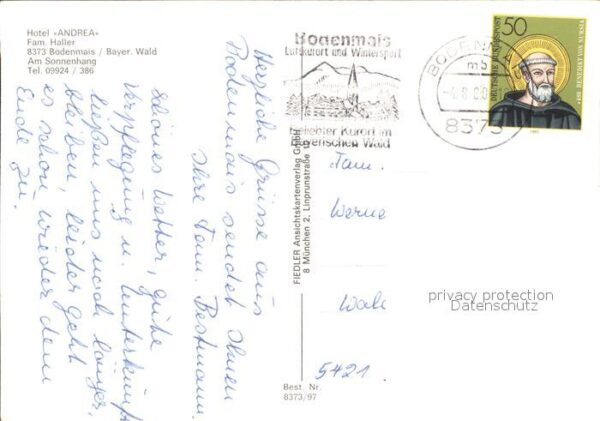 Hotel «ANDREA»
Fam. Haller
8373 Bodenmais / Bayer. Wald
Am Sonnenhang
Tel. 09924 / 386
Herzliche Grüsse aus
Bodenmais sendet Ihnen
Ihre Fam. Bestmann.
Schönes Wetter, gute
Verpflegung u. Unterkunft
ließen uns noch länger
bleiben, leider geht
es schon wieder dem
Ende zu.
Bodenmais
Luftkurort und Wintersport
beliebter Kurort im
Bayerischen Wald
BODENMAIS
mb
8373
50
DEUTSCHE BUNDESPOST
480 BENEDIKT VON NURSIA
FIEDLER Ansichtskartenverlag GmbH
8 München 2, Linprunstraße
Fam.
Werne
5421
privacy protection
Datenschutz
Best. Nr.
8373/97